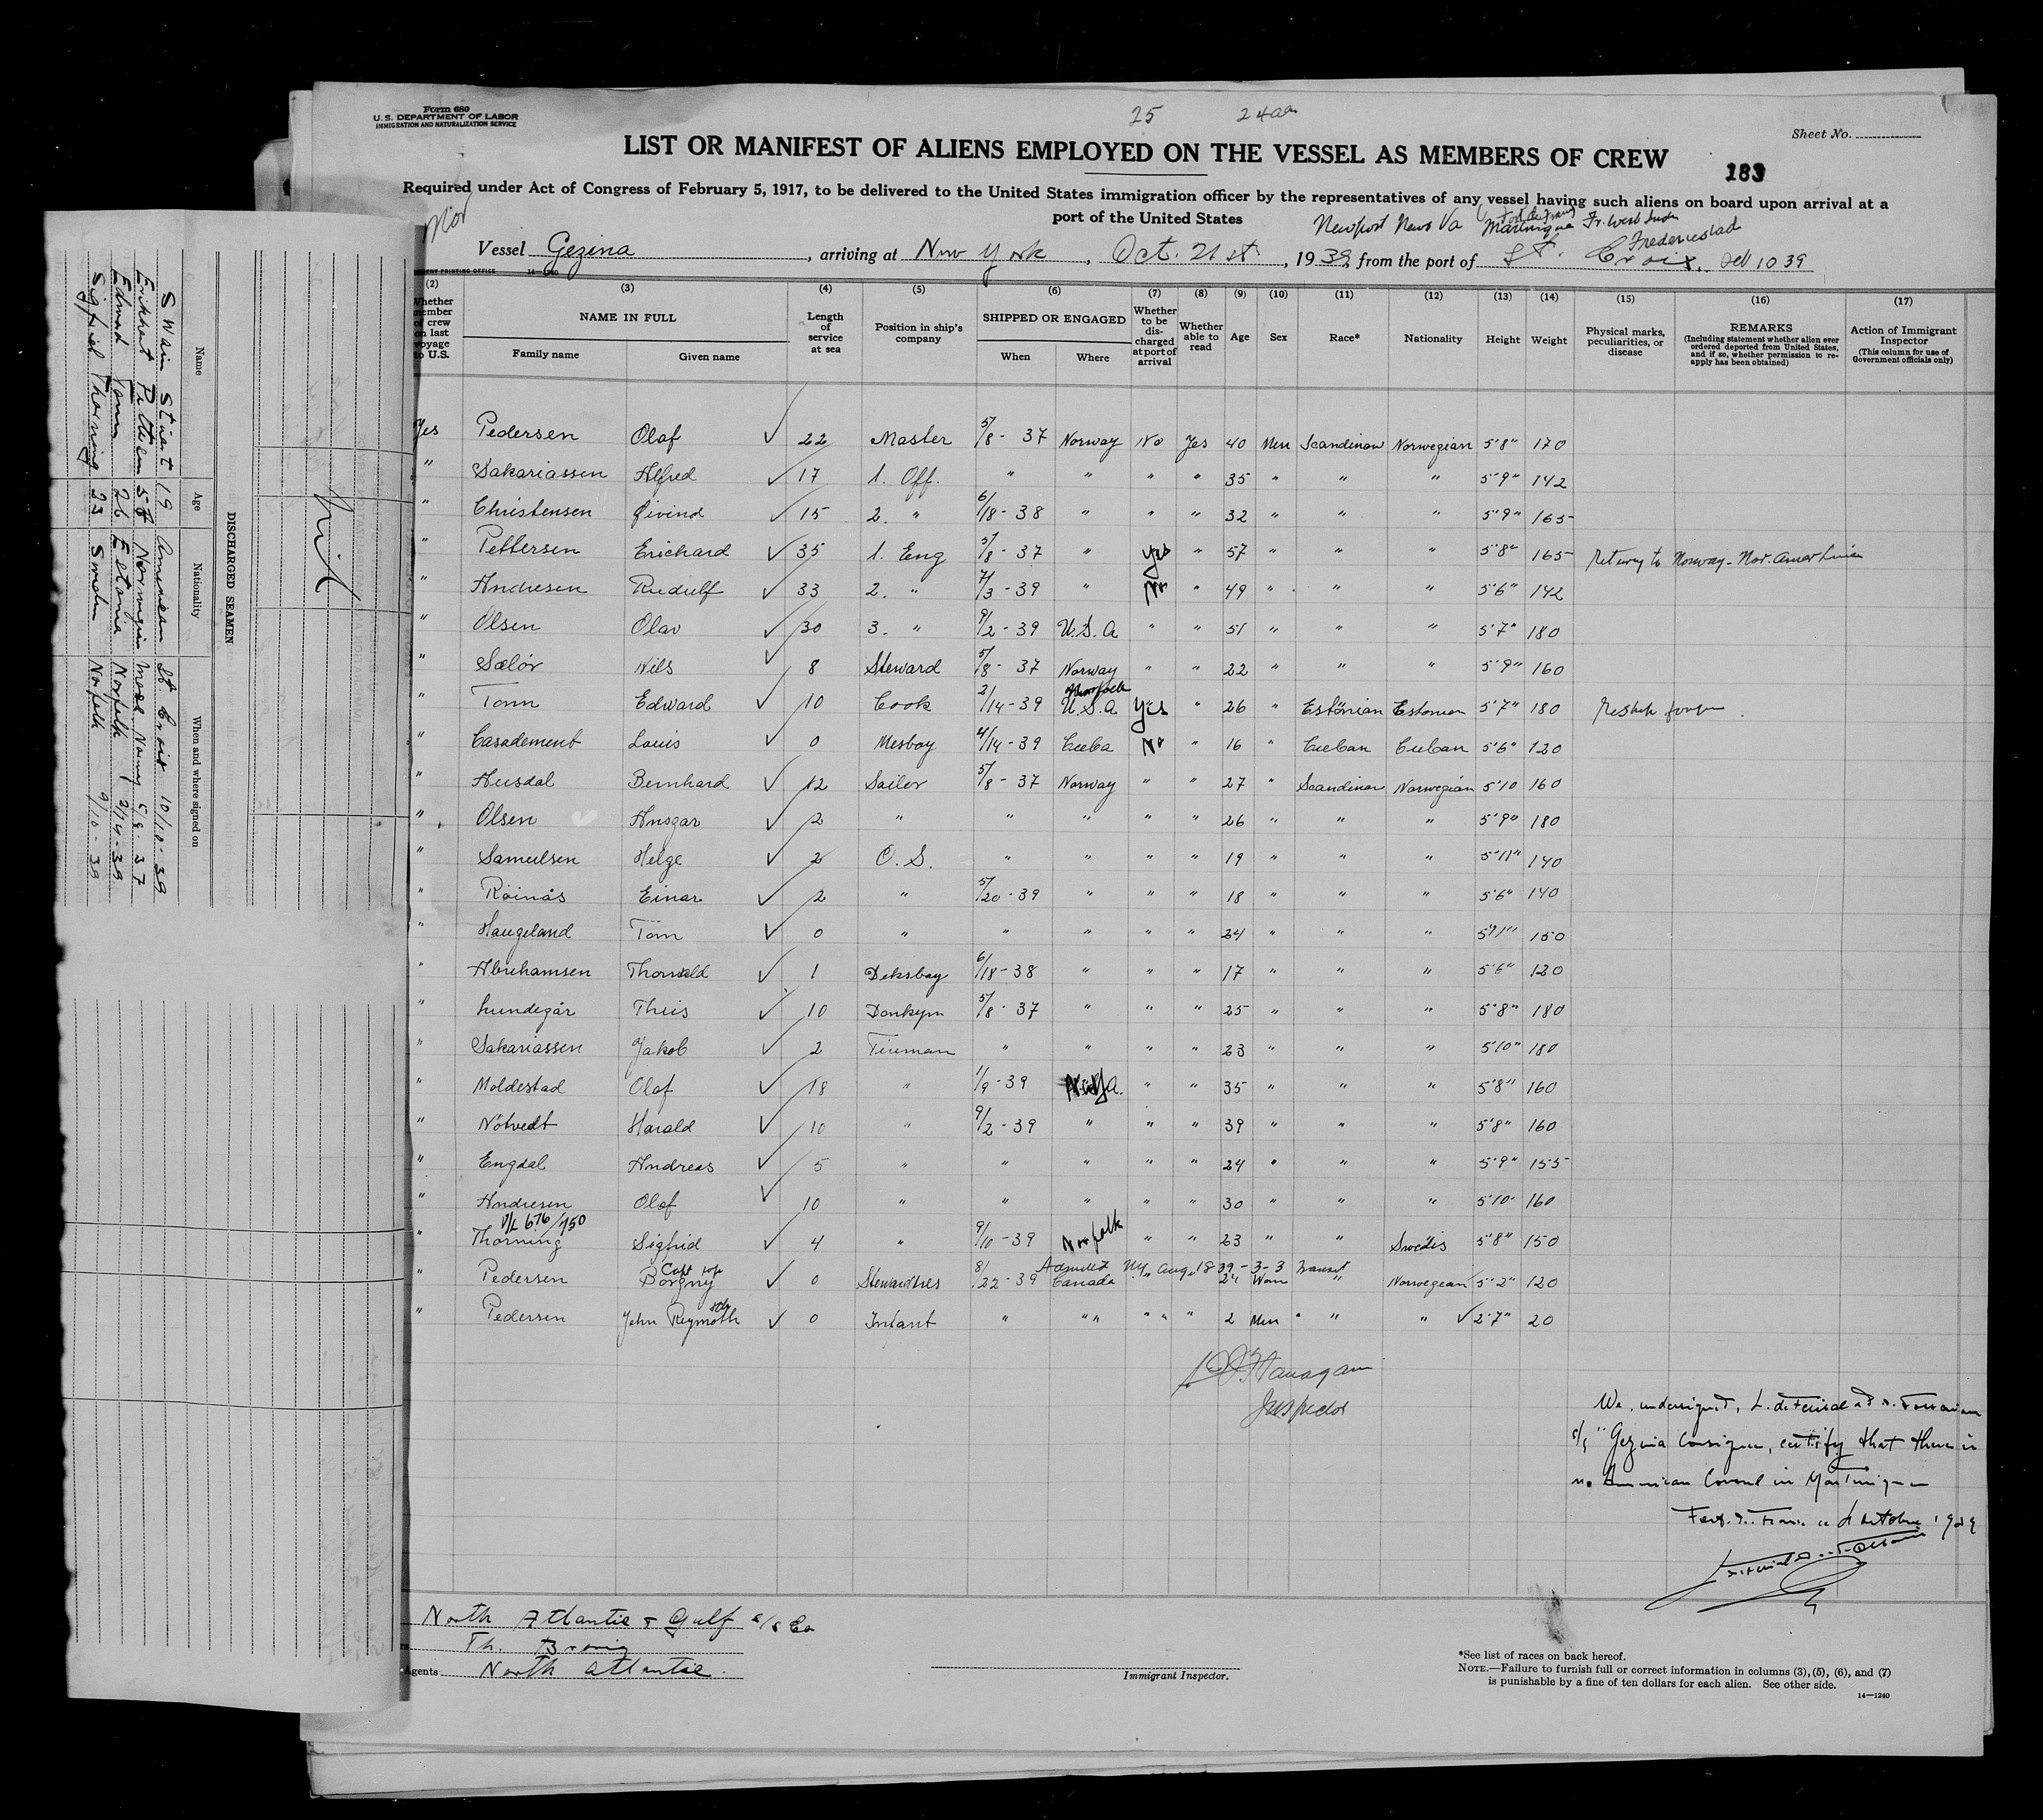 Form 680
U.S. DEPARTMENT OF LABOR
IMMIGRATION AND NATURALIZATION SERVICE
25
Sheet No.
LIST OR MANIFEST OF ALIENS EMPLOYED ON THE VESSEL AS MEMBERS OF CREW
183
Required under Act of Congress of February 5, 1917, to be delivered to the United States immigration officer by the representatives of any vessel having such aliens on board upon arrival at a
port of the United States
Nor
Newport News Va Martinique Fr. West Indies
Frederiksted
Vessel Gezina, arriving at New York, Oct. 21st, 1939, from the port of St. Croix, Oct 10 39
14-1240
(2) (3) (4) (5) (6) (7) (8) (9) (10) (11) (12) (13) (14) (15) (16) (17)
Whether member of crew on last voyage to U.S.
NAME IN FULL
Family name
Given name
Length of service at sea
Position in ship's company
SHIPPED OR ENGAGED
When
Where
Whether to be discharged at port of arrival
Whether able to read
Age
Sex
Race*
Nationality
Height
Weight
Physical marks, peculiarities, or disease
REMARKS
(Including statement whether alien ever ordered deported from United States, and if so, whether permission to reapply has been obtained)
Action of Immigrant Inspector
(This column for use of Government officials only)
Yes Pedersen Olaf ✓ 22 Master 5/8 - 37 Norway No Yes 40 Men Scandinav Norwegian 5'8" 170
" Sakariassen Alfred ✓ 17 1. Off. " " " " 35 " " " 5'9" 142
" Christensen Øivind ✓ 15 2. " 6/18 - 38 " " " 32 " " " 5'9" 165
" Pettersen Erichard ✓ 35 1. Eng 5/8 - 37 " yes " 57 " " " 5'8" 165 Return to Norway - Nor. Amer Line
" Andresen Rudulf ✓ 33 2. " 7/3 - 39 " No " 49 " " " 5'6" 142
" Olsen Olav ✓ 30 3. " 9/2 - 39 U.S.A " " 51 " " " 5'7" 180
" Sælör Nils ✓ 8 Steward 5/8 - 37 Norway " " 22 " " " 5'9" 160
" Tonn Edward ✓ 10 Cook 2/14 - 39 Norfolk U.S.A Yes " 26 " Estonian Estonian 5'7" 180 Reship foreign
" Casadement Louis ✓ 0 Mesboy 4/14 - 39 Cuba No " 16 " Cuban Cuban 5'6" 120
" Husdal Bernhard ✓ 12 Sailor 5/8 - 37 Norway " " 27 " Scandinav Norwegian 5'10 160
" Olsen Ansgar ✓ 2 " " " " " 26 " " " 5'9" 180
" Samuelsen Helge ✓ 2 O. S. " " " " 19 " " " 5'11" 140
" Röinås Einar ✓ 2 " 5/20 - 39 " " " 18 " " " 5'6" 140
" Haugeland Tom ✓ 0 " " " " " 24 " " " 5'11" 150
" Abrahamsen Thorvald ✓ 1 Deksboy 6/18 - 38 " " " 17 " " " 5'6" 120
" Lundegår Theis ✓ 10 Donkeym 5/8 - 37 " " " 25 " " " 5'8" 180
" Sakariassen Jakob ✓ 2 Fireman " " " " 23 " " " 5'10" 180
" Moldestad Olaf ✓ 18 " 1/9 - 39 " " 35 " " " 5'8" 160
" Nötvedt Harald ✓ 10 " 9/2 - 39 " " " 39 " " " 5'8" 160
" Engdal Andreas ✓ 5 " " " " " 24 " " " 5'9" 155
" Andresen Olaf ✓ 10 " " " " " 30 " " " 5'10" 160
V/L 676/750
" Thorning Sigfrid ✓ 4 " 9/10 - 39 Norfolk " " 23 " " Swedis 5'8" 150
Capt wife Admitted NY Aug 18 39 - 3-3 Transit
" Pedersen Borgny ✓ 0 Stewardhes 8/22 - 39 Canada " " 24 Wom " Norwegian 5'2" 120
" Pedersen John Reymoth son ✓ 0 Infant " " " " " " 2 Men " " " ✓ 2'7" 20
Flanagan
Inspector
We, undersigned,
s/s "Gezina Consignee, certify that there is
no American Consul in Martinique
Fort de France 4 October 1939
North Atlantic & Gulf s/s Co
Th. Brovig
Agents North Atlantic
Immigrant Inspector.
*See list of races on back hereof.
NOTE.—Failure to furnish full or correct information in columns (3), (5), (6), and (7)
is punishable by a fine of ten dollars for each alien. See other side.
14—1240
Nil
DISCHARGED SEAMEN
Name Age Nationality When and where signed on
Swain Stuart 19 American St. Croix 10/10 - 39
Erikhart Pettersen 58 Norwegian Moss Norway 5/8 37
Edward Tonn 26 Estonia Norfolk 2/14-39
Sigfried Thorning 23 Sweden Norfolk 9/10 - 39